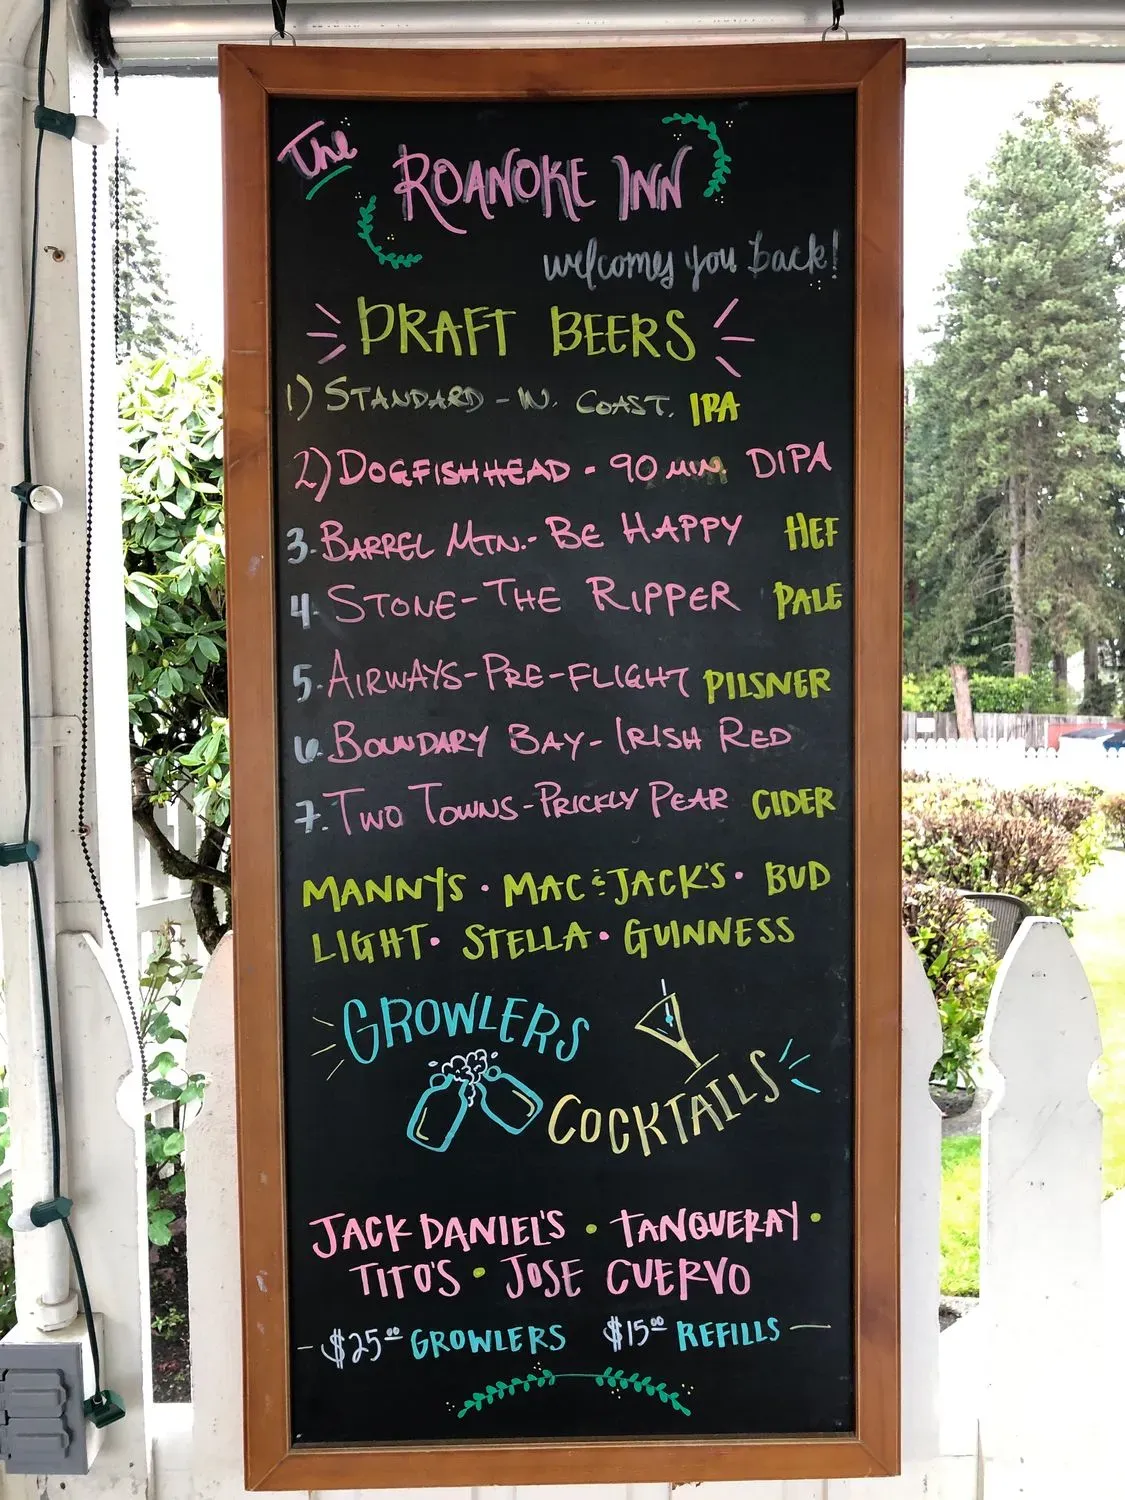 The
ROANOKE INN
welcomes you back!
DRAFT BEERS
1) STANDARD - W. COAST. IPA
2) DOGFISHHEAD - 90 MIN. DIPA
3. BARREL MTN. - BE HAPPY HEF
4. STONE - THE RIPPER PALE
5. AIRWAYS - PRE-FLIGHT PILSNER
6. BOUNDARY BAY - IRISH RED
7. TWO TOWNS - PRICKLY PEAR CIDER
MANNYS • MAC & JACK'S • BUD
LIGHT • STELLA • GUINNESS
GROWLERS
COCKTAILS
JACK DANIEL'S • TANQUERAY •
TITO'S • JOSE CUERVO
- $25.00 GROWLERS $15.00 REFILLS -